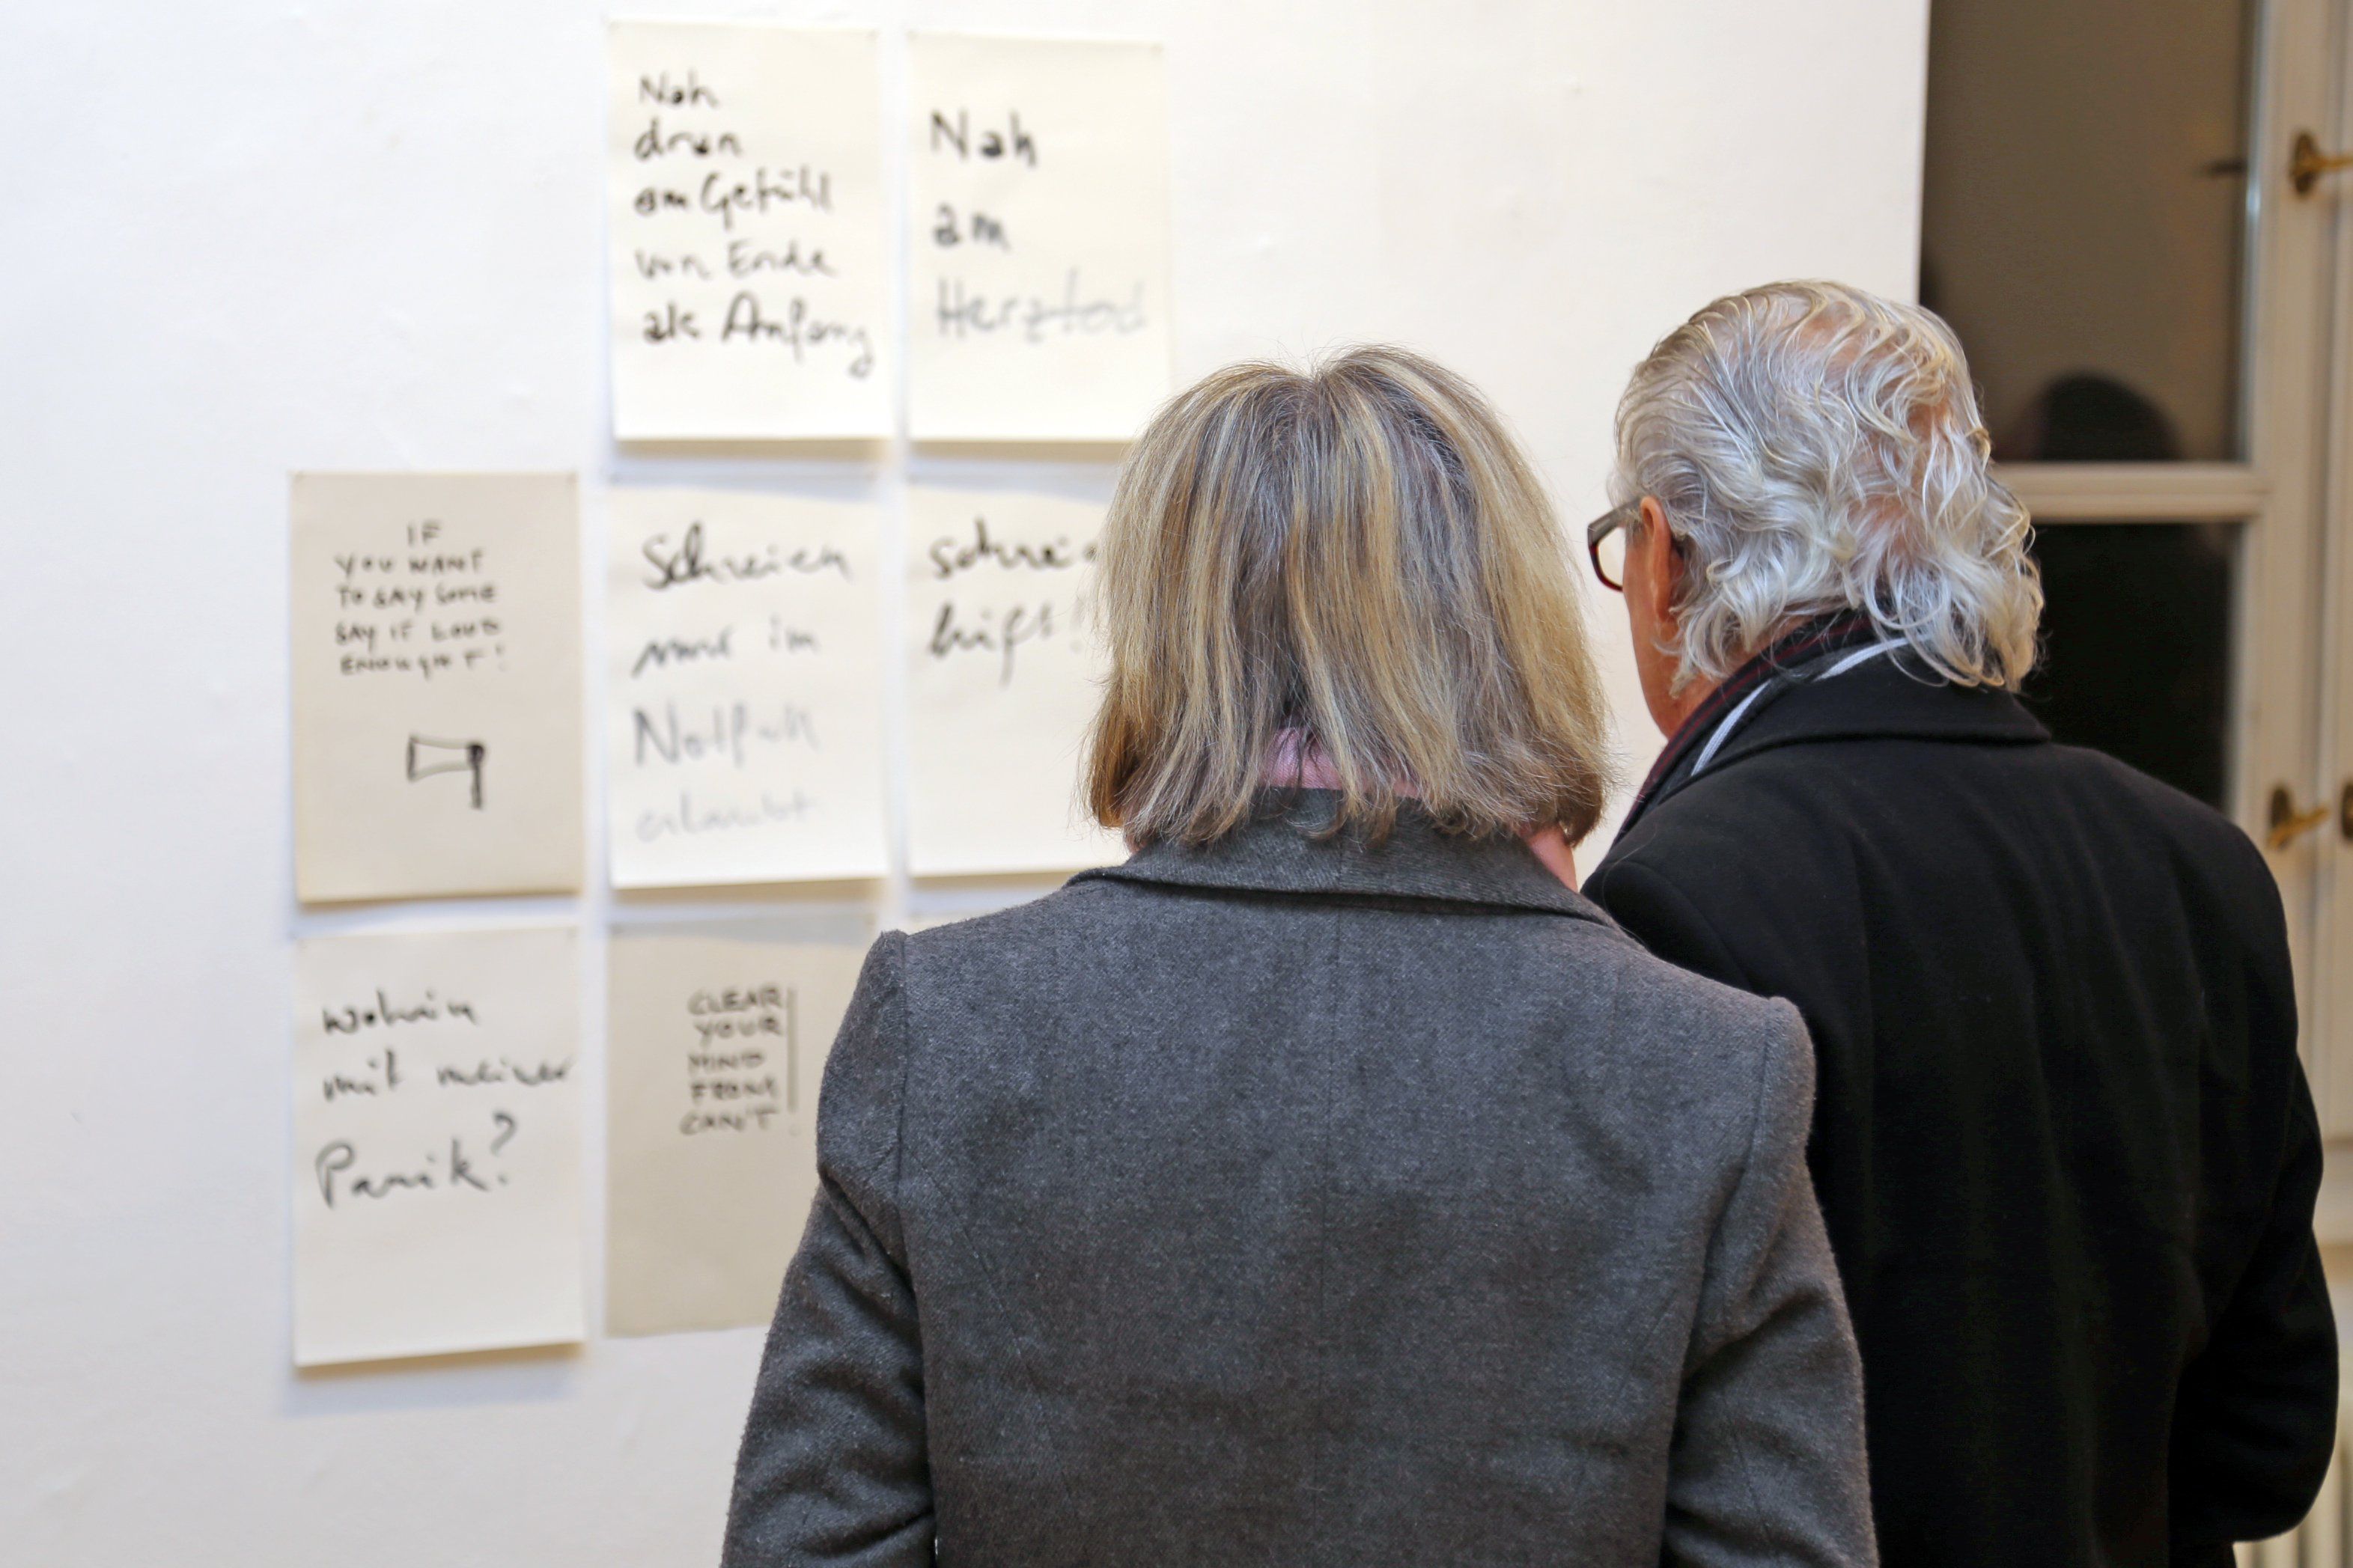 Nah
dran
am Gefühl
von Ende
als Anfang
Nah
am
Herztod
IF
YOU WANT
TO SAY SOME
SAY IT LOUD
ENOUGHT!
Schreien
nur im
Notfall
erlaubt
hilft!
wohin
mit meiner
Panik?
CLEAR
YOUR
MIND
FROM
CAN'T!